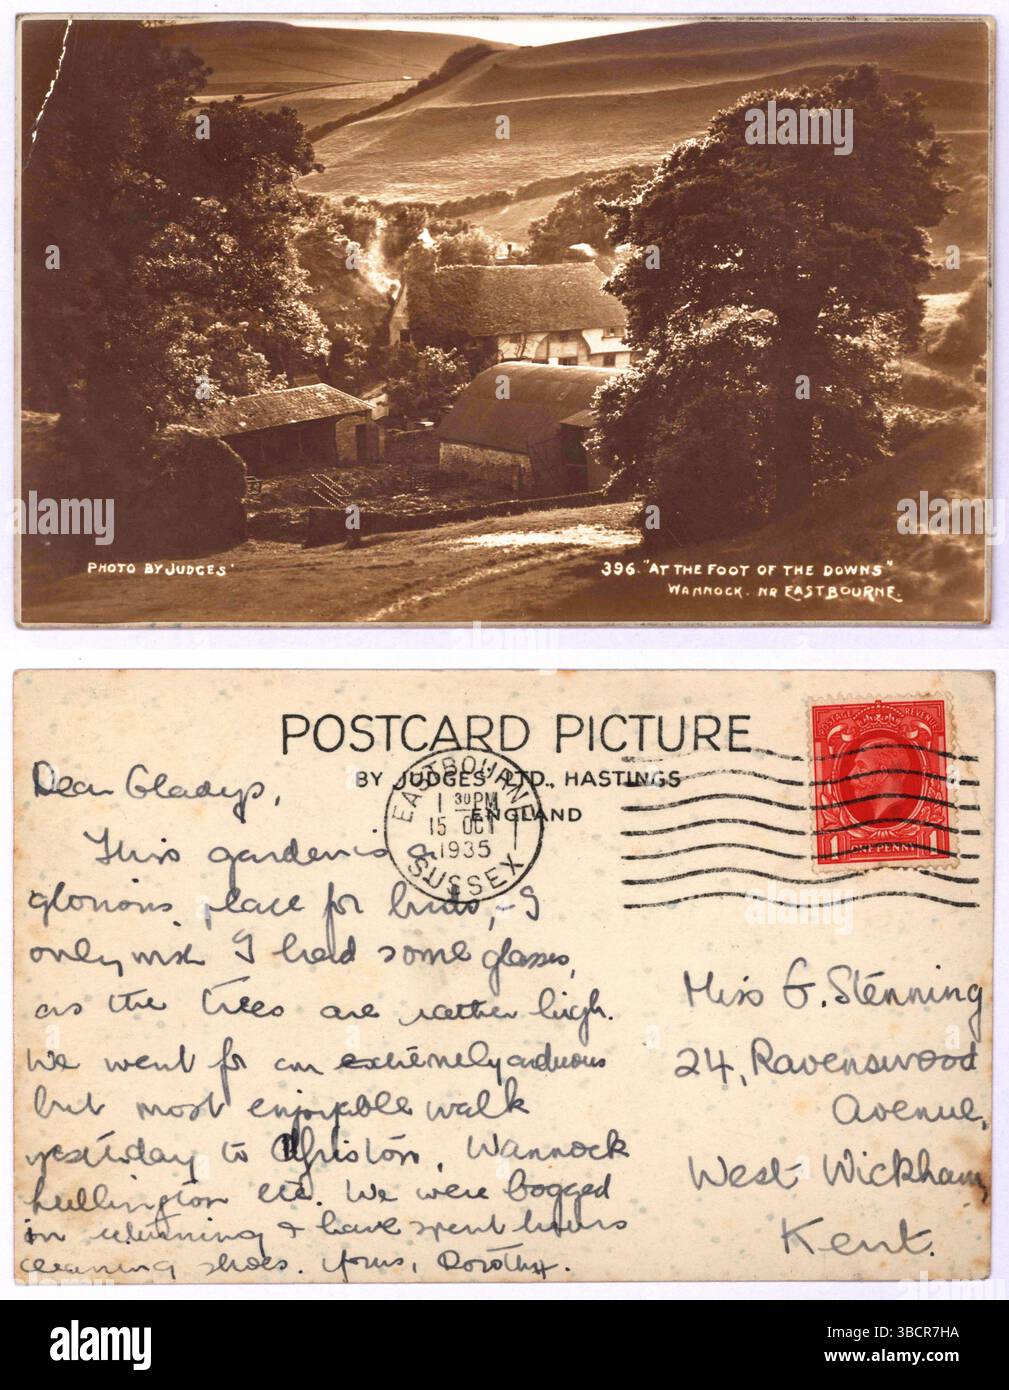 PHOTO BY JUDGES'
396. "AT THE FOOT OF THE DOWNS"
WANNOCK. NR EASTBOURNE.
POSTCARD PICTURE
BY JUDGES LTD., HASTINGS
ENGLAND
EASTBOURNE
1 30PM
15 OCT
1935
SUSSEX
POSTAGE REVENUE
1 ONE PENNY 1
Dear Gladys,
This garden is a
glorious place for birds, - I
only wish I had some glasses,
as the trees are rather high.
We went for an extremely arduous
but most enjoyable walk
yesterday to Alfriston, Wannock
Lullington etc. We were bogged
in returning & have spent hours
cleaning shoes. Yours, Dorothy.
Miss G. Stenning
24, Ravenswood
Avenue,
West Wickham,
Kent.
alamy
alamy
Image ID: 3BCR7HA
www.alamy.com